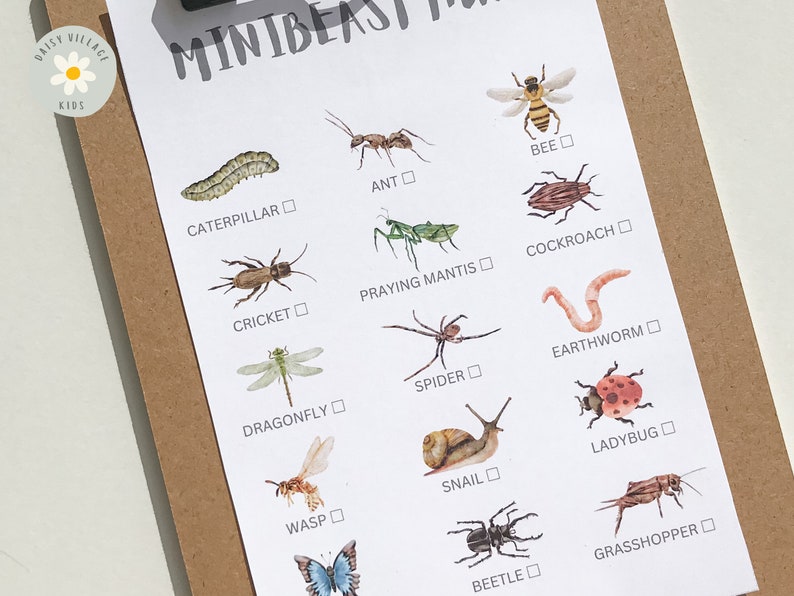 DAISY VILLAGE
KIDS
MINIBEAST
BEE ☐
ANT ☐
CATERPILLAR ☐
COCKROACH ☐
PRAYING MANTIS ☐
CRICKET ☐
EARTHWORM ☐
SPIDER ☐
DRAGONFLY ☐
LADYBUG ☐
SNAIL ☐
WASP ☐
GRASSHOPPER ☐
BEETLE ☐